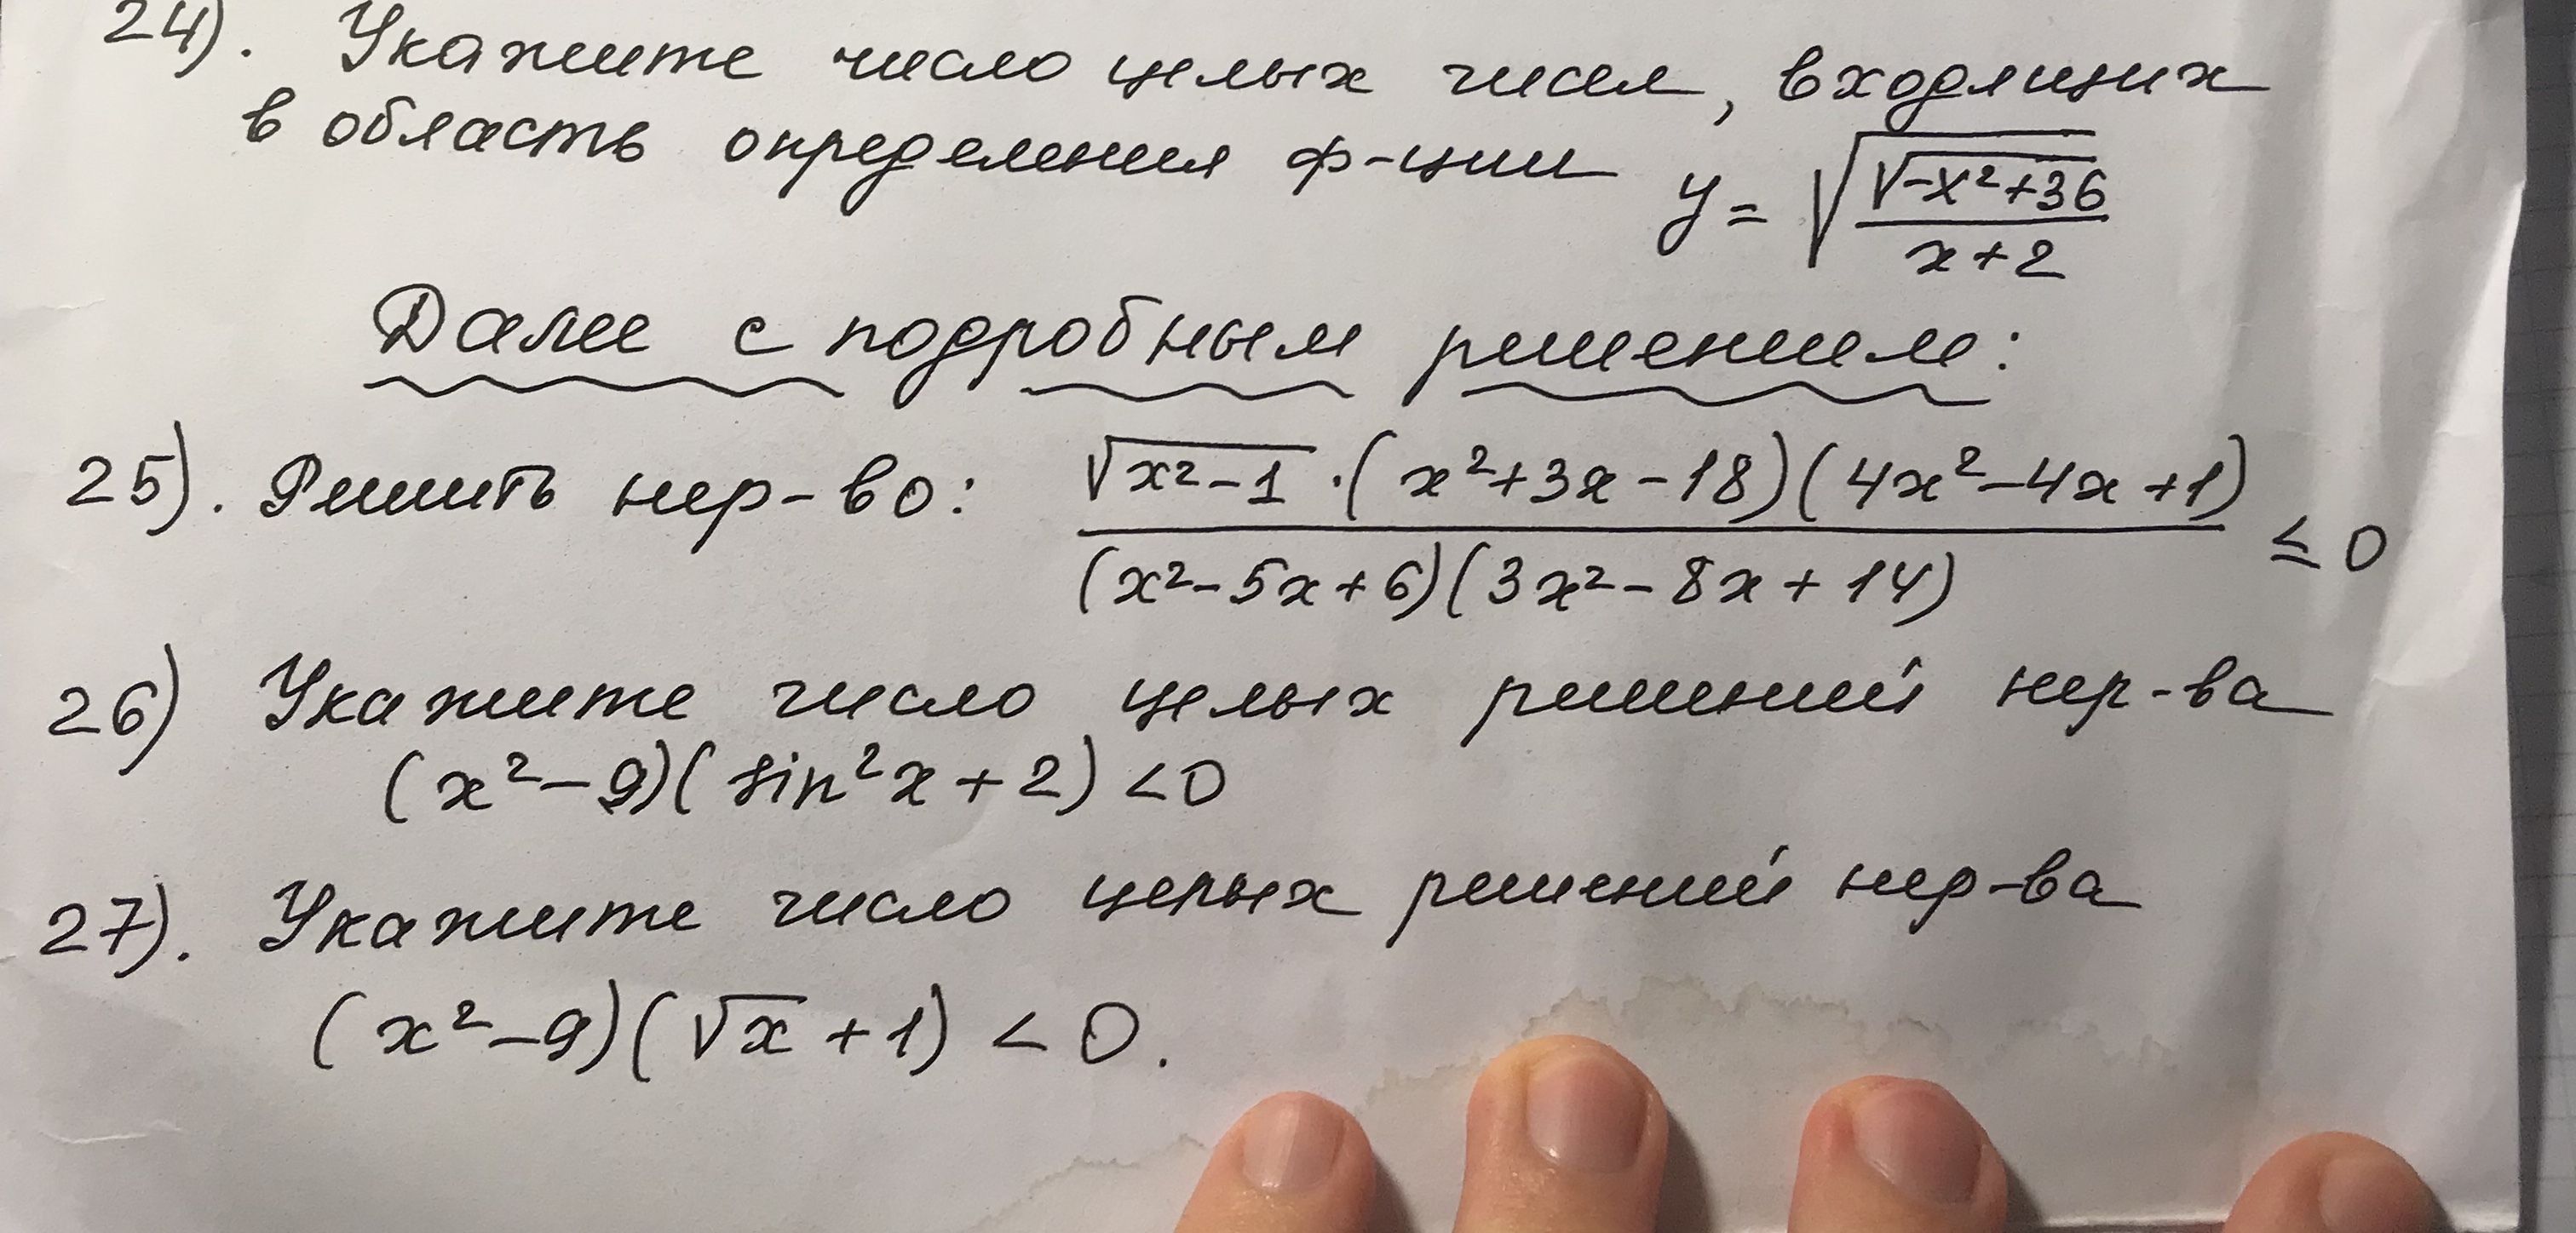 24). Укажите число целых чисел, входящих
в область определения ф-ции y = √(√(-x²+36) / (x+2))
Далее с подробным решением:
25). Решить нер-во: (√(x²-1) · (x²+3x-18)(4x²-4x+1)) / ((x²-5x+6)(3x²-8x+14)) ≤ 0
26) Укажите число целых решений нер-ва
(x²-9)(sin²x+2) <0
27). Укажите число целых решений нер-ва
(x²-9)(√x +1) < 0.